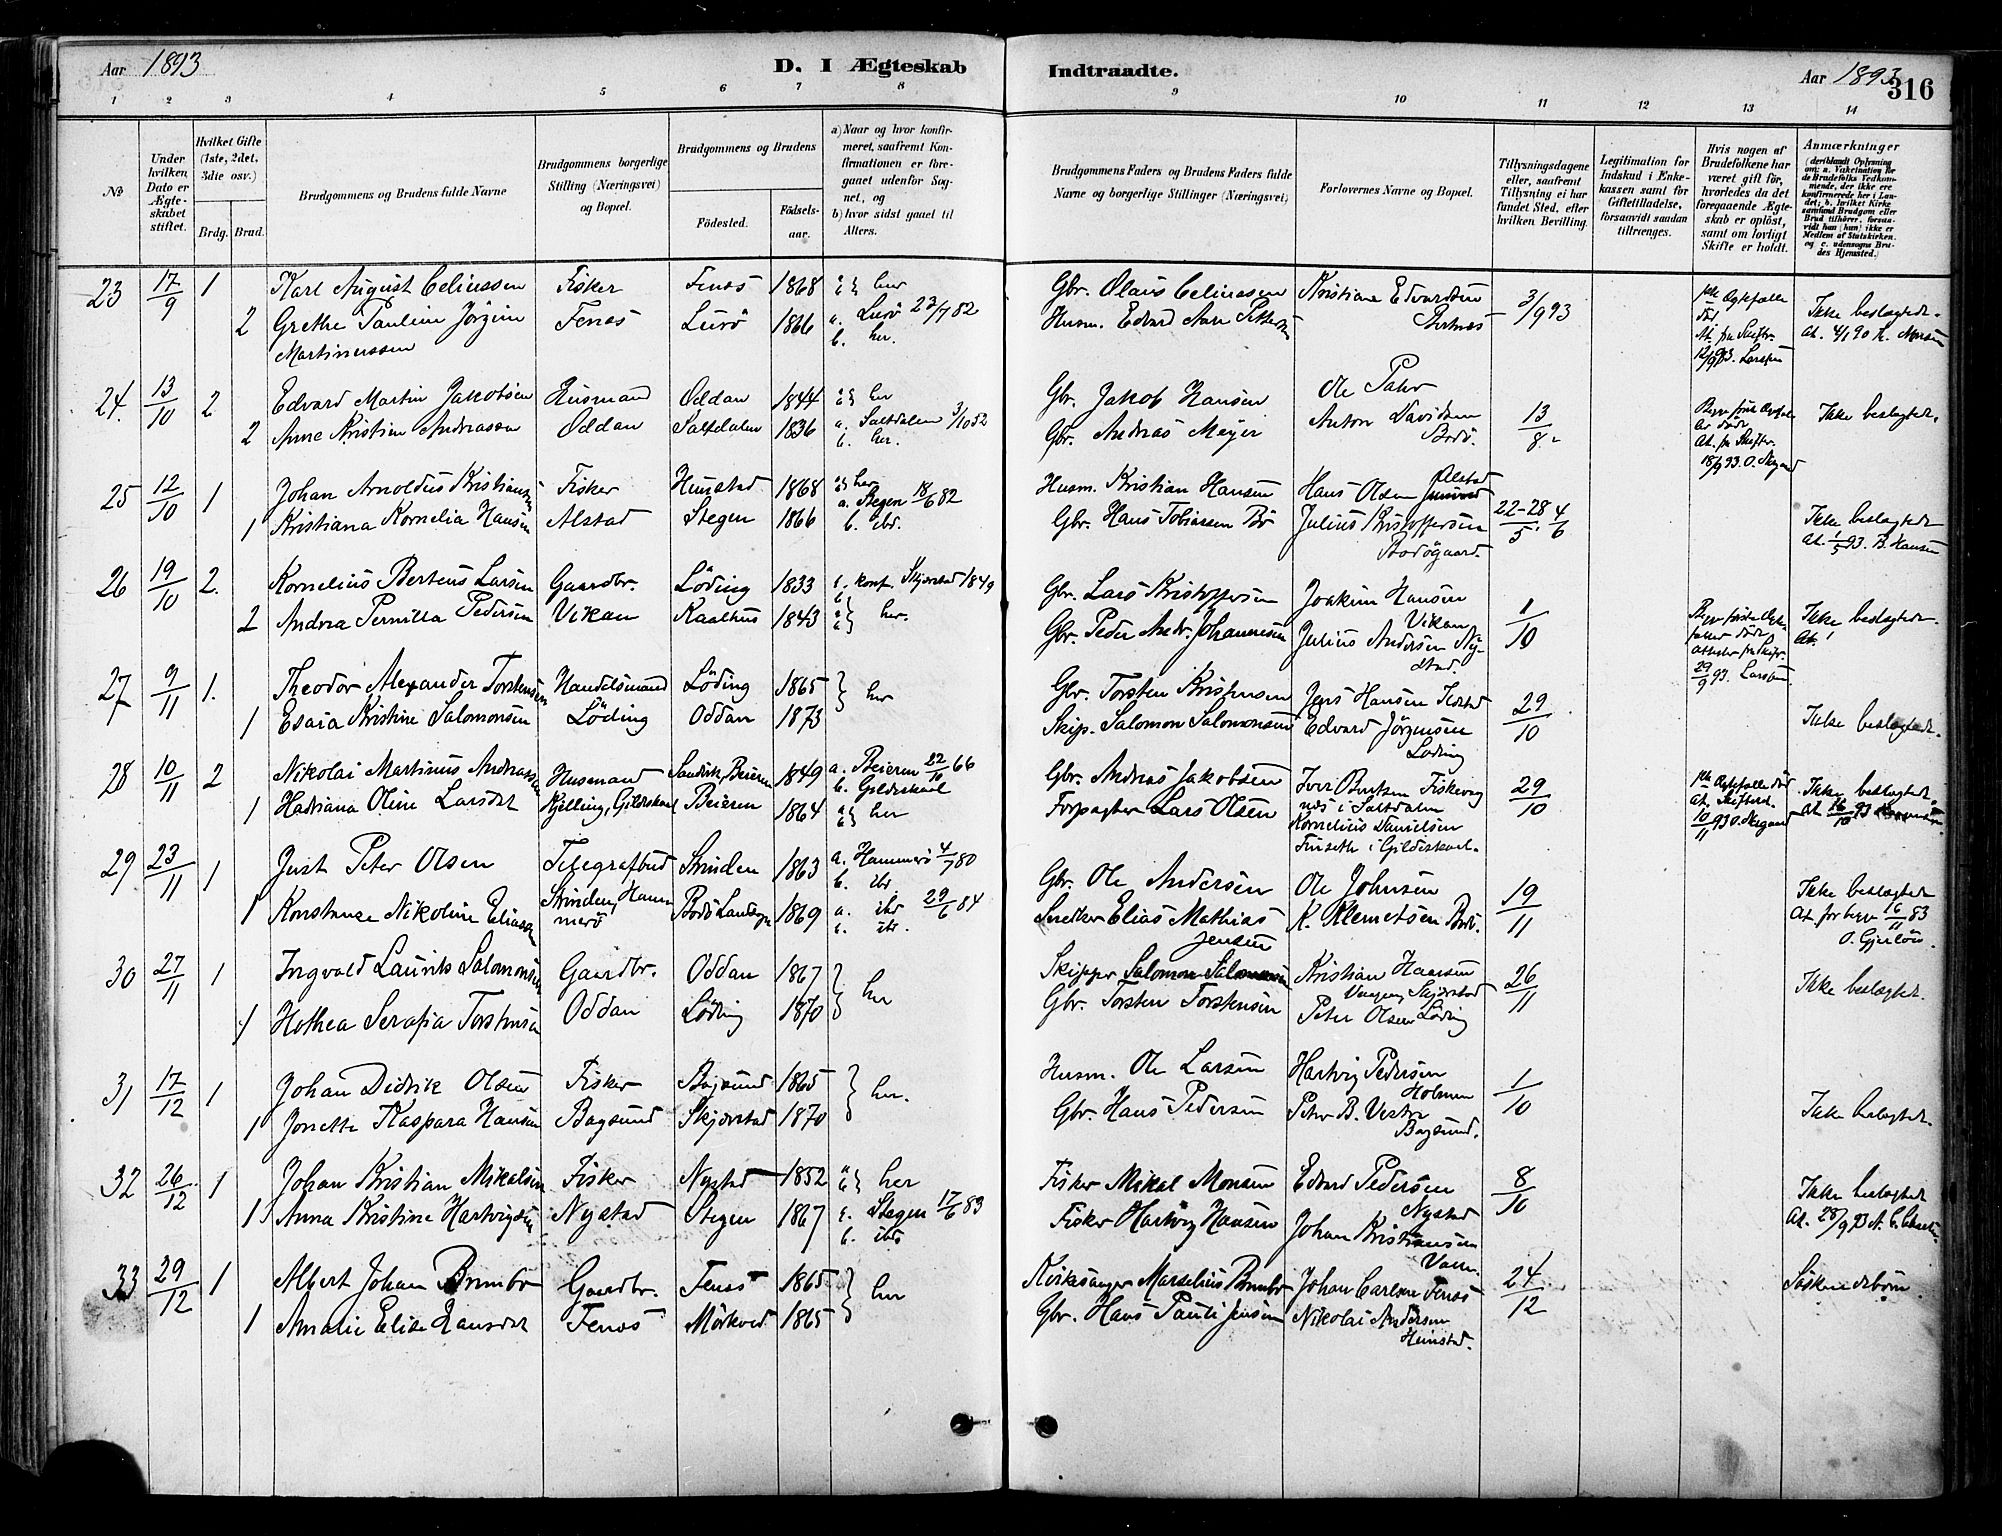 Aar 1893
D. I Ægteskab Indtraadte.
Aar 1893
316
1 2 3 4 5 6 7 8 9 10 11 12 13 14
№
Under hvilken Dato er Ægteskabet stiftet.
Hvilket Gifte (1ste, 2det, 3die osv.)
Brdg. Brud.
Brudgommens og Brudens fulde Navne
Brudgommens borgerlige Stilling (Næringsvei) og Bopæl.
Brudgommens og Brudens
Födested.
Födselsaar.
a) Naar og hvor konfirmeret, saafremt Konfirmationen er foregaaet udenfor Sognet, og
b) hvor sidst gaaet til Alters.
Brudgommens Faders og Brudens Faders fulde Navne og borgerlige Stillinger (Næringsvei)
Forlovernes Navne og Bopæl.
Tillysningsdagene eller, saafremt Tillysning ei har fundet Sted, efter hvilken Bevilling.
Legitimation for Indskud i Enkekassen samt for Giftetilladelse, forsaavidt saadan tiltrænges.
Hvis nogen af Brudefolkene har været gift før, hvorledes da det foregaaende Ægteskab er oplöst, samt om lovligt Skifte er holdt.
Anmærkninger (deriblandt Oplysning om: a. Vakcination for de Brudefolks Vedkommende, der ikke ere konfirmerede her i Landet; b. hvilket Kirkesamfund Brudgom eller Brud tilhörer, forsaavidt han (hun) ikke er Medlem af Statskirken, og c. udensogns Brudes Hjemsted.)
23 17/9 1 Karl August Celiussen Fisker Fenes 1868 a b her Gbr. Olaus Celiussen Kristian Edvardsen 3/9 93 Ikke beslægtede.
2 Grethe Pauline Jörgine Fenes Lurö 1866 a. Lurö 27/7 82 Husm. Edvard Aare
Martinussen b. her.
24. 13/10 2 Edvard Martin Jakobsen Husmand Oddan 1844 a b her Gbr. Jakob Hansen Ole Peder
2 Anne Kristine Andreassen Oddan Saltdalen 1836 a. Saltdalen 3/10 52 Gbr. Andreas Meyer Anton Davidsen 13/8 Ikke beslægtede.
b. her. Bodö.
25 12/10 1 Johan Arnoldus Kristiansen Fisker Hunstad 1868 a b her Husm. Kristian Hansen Hans Olsen Alstad
1 Kristiana Kornelia Hansen Alstad Stegen 1866 a. Stegen 18/6 82 Gbr. Hans Tobiassen Bö Julius Kristoffersen 22-28/5. 4/6 Ikke beslægtede
b. ibd. Bodögaard. At. 1/5 93. B. Hansen
26 19/10 2. Kornelius Berteus Larsen Gaardbr. Löding 1833 a. konf. Skjerstad 1849 Gbr. Lars Kristoffersen Joakim Hansen Vikan 1/10
2 Andrea Pernilla Pedersen Vikan Kaalhus 1843 a b her. Gbr. Peder Andr. Johannesen Julius Andersen Nystad. Ikke beslægtede.
27 9/11 1. Theodor Alexander Torstensen Handelsmand Löding 1865 her Gbr. Torsten Kristensen Jens Hansen 29/10
1 Esaia Kristine Salomonsen Löding Oddan 1873 Skip. Salomon Salomonsen Edvard Jörgensen Löding Ikke beslægtede.
28 10/11 2 Nikolai Martinus Andreassen Husmand Sandvik, Beieren 1849 a. Beieren 22/10 66 b. Gildeskaal Gbr. Andreas Jakobsen Iver Bentsen Fiskvagnes i Saltdalen 29/10 Ikke beslægtede.
1 Hadriana Oline Larsdat Kjelling, Gildeskaal Beieren 1864 a b her Forpagter Lars Olsen Kornelius Danielsen
Finseth i Gildeskaal.
29 23/11 1 Just Peter Olsen Telegrafbud Strinden 1863 a. Hammerö 4/7 80 b. ibd Gbr. Ole Andersen Ole Johnsen 19/11 Ikke beslægtede
1 Konstanse Nikoline Eliassen Strinden, Hammerö Bodö Landsogn 1869 a. ibd 29/6 84 b. ibd. Snedker Elias Mathias Jensen K. Klemetsen Bodö.
30 27/11 1 Ingvald Laurits Salomonsen Gaardbr. Oddan 1867 her Skipper Salomon Salomonsen Kristian Hansen 26/11 Ikke beslægtede.
1 Hothea Serafia Torstensen Oddan Löding 1870 Gbr. Torsten Torstensen Peter Olsen Löding
31 17/12 1 Johan Didrik Olsen Fisker Bagsund 1865 her. Husm. Ole Larsen Hartvig Pedersen Holmen 1/10
1 Jonette Kaspara Hansen Bagsund Skjerstad 1870 Gbr. Hans Pedersen Peter B. Vestre Bagsund. Ikke beslægtede.
32 26/12 1 Johan Kristian Mikalsen Fisker Nystad 1852 a b her Fisker Mikal Monsen Edvard Pedersen Nystad 8/10 Ikke beslægtede
1 Anna Kristine Hartvigsen Nystad Stegen 1867 a. Stegen 17/6 83 b. ibd Fisker Hartvig Hansen Johan Kristiansen
33 29/12 1 Albert Johan Brembo Gaardbr. Fenes 1865 her Kirkesanger Marselius Brembo Johan Carlsen Fenes 24/12 Söskendebörn.
1 Amalie Elise Hansdat Fenes Mörkved 1865 Gbr. Hans Pauli Jensen Nikolai Andersen
Hunstad.